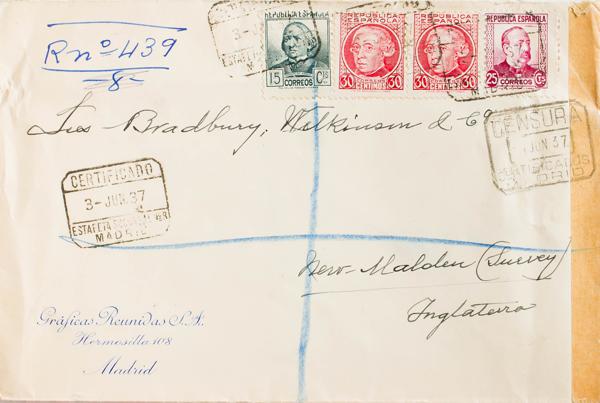 R nº 439
8
REPUBLICA ESPAÑOLA
15 Cts
CORREOS
REPUBLICA ESPAÑOLA
30 30
CENTIMOS
REPUBLICA ESPAÑOLA
30 30
REPUBLICA ESPAÑOLA
25 Cts
CORREOS
Sres Bradbury, Wilkinson & Cº
CENSURA
JUN 37
CERTIFICADOS
MADRID
CERTIFICADO
3- JUN. 37
ESTAFETA
MADRID
New-Malden (Surrey)
Inglaterra
Gráficas Reunidas S.A.
Hermosilla 108
Madrid